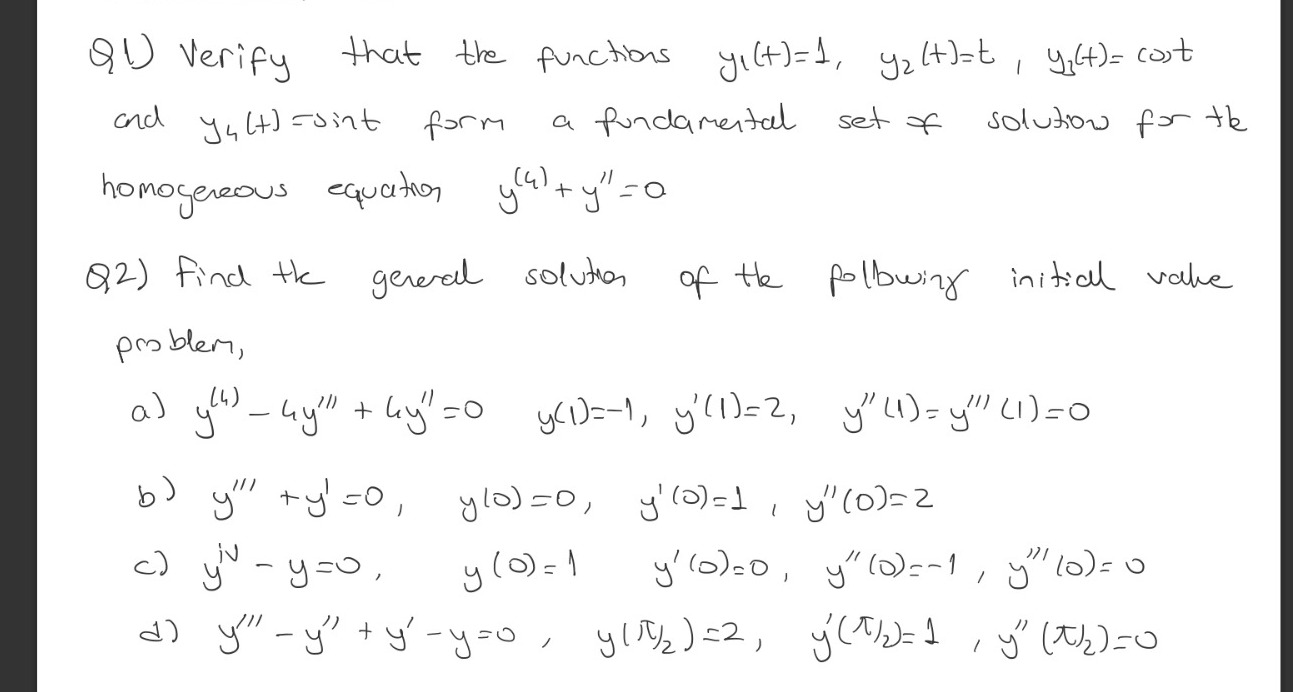 Q1) Verify that the functions y₁(t)=1, y₂(t)=t, y₃(t)=cost
and y₄(t)=sint form a fundamental set of solution for the
homogeneous equation y⁽⁴⁾+y''=0
Q2) Find the general solution of the following initial value
problem,
a) y⁽⁴⁾-4y'''+4y''=0 y(1)=-1, y'(1)=2, y''(1)=y'''(1)=0
b) y'''+y'=0, y(0)=0, y'(0)=1, y''(0)=2
c) yⁱᵛ-y=0, y(0)=1 y'(0)=0, y''(0)=-1, y'''(0)=0
d) y'''-y''+y'-y=0, y(π/2)=2, y'(π/2)=1, y''(π/2)=0